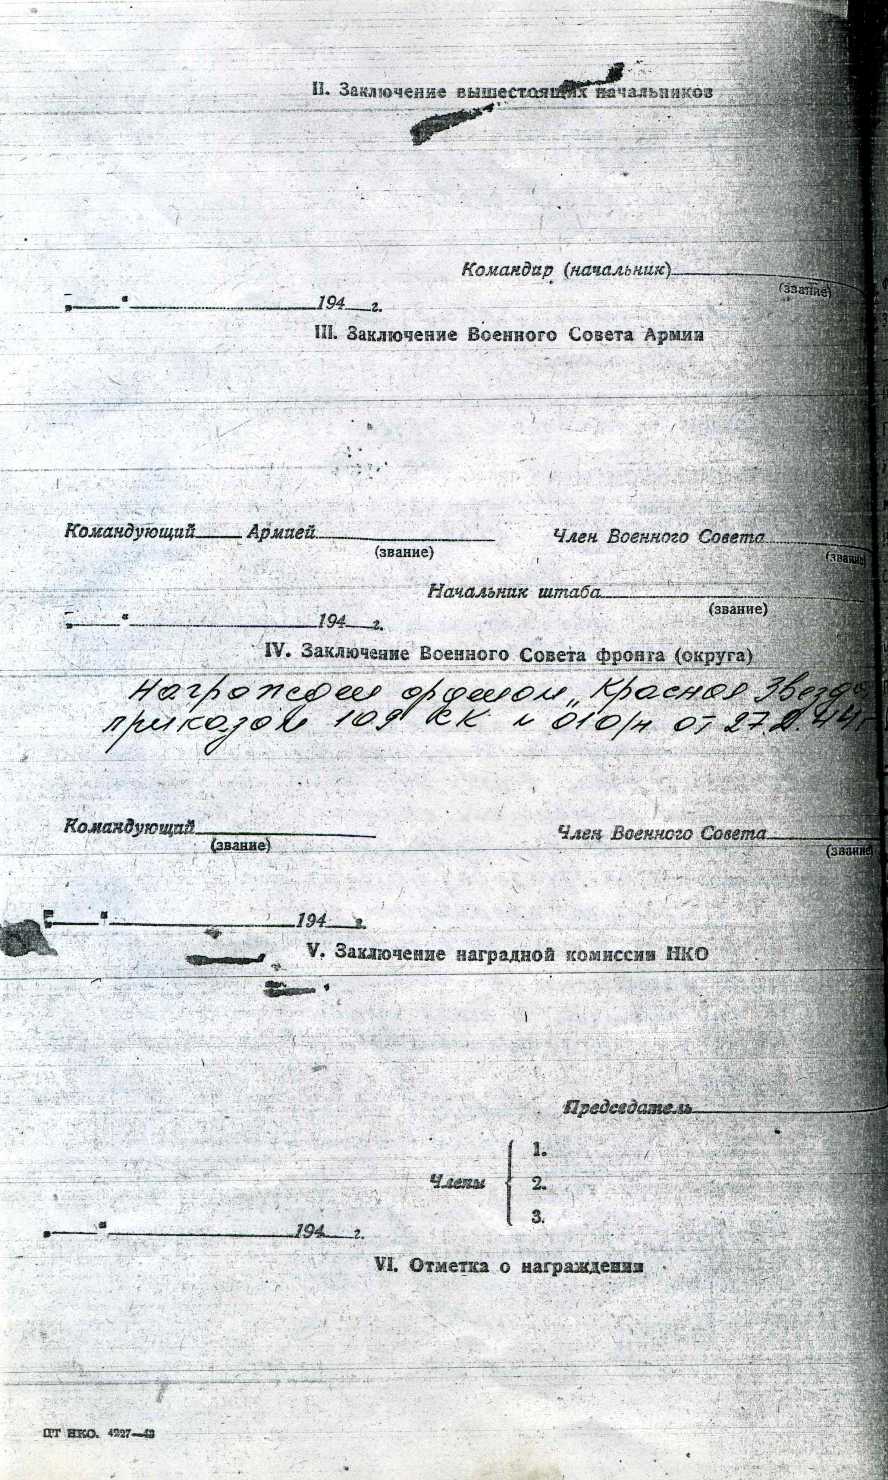 II. Заключение вышестоящих начальников
Командир (начальник)
(звание)
„ “ 194 г.
III. Заключение Военного Совета Армии
Командующий Армией Член Военного Совета
(звание) (звание)
Начальник штаба
(звание)
„ “ 194 г.
IV. Заключение Военного Совета фронта (округа)
Награжден орденом „Красная Звезда
приказом 109 СК н 010/н от 27.2.44г
Командующий Член Военного Совета
(звание) (звание)
„ “ 194 г.
V. Заключение наградной комиссии НКО
Председатель
1.
Члены 2.
3.
„ “ 194 г.
VI. Отметка о награждении
ЦТ НКО. 4227—43